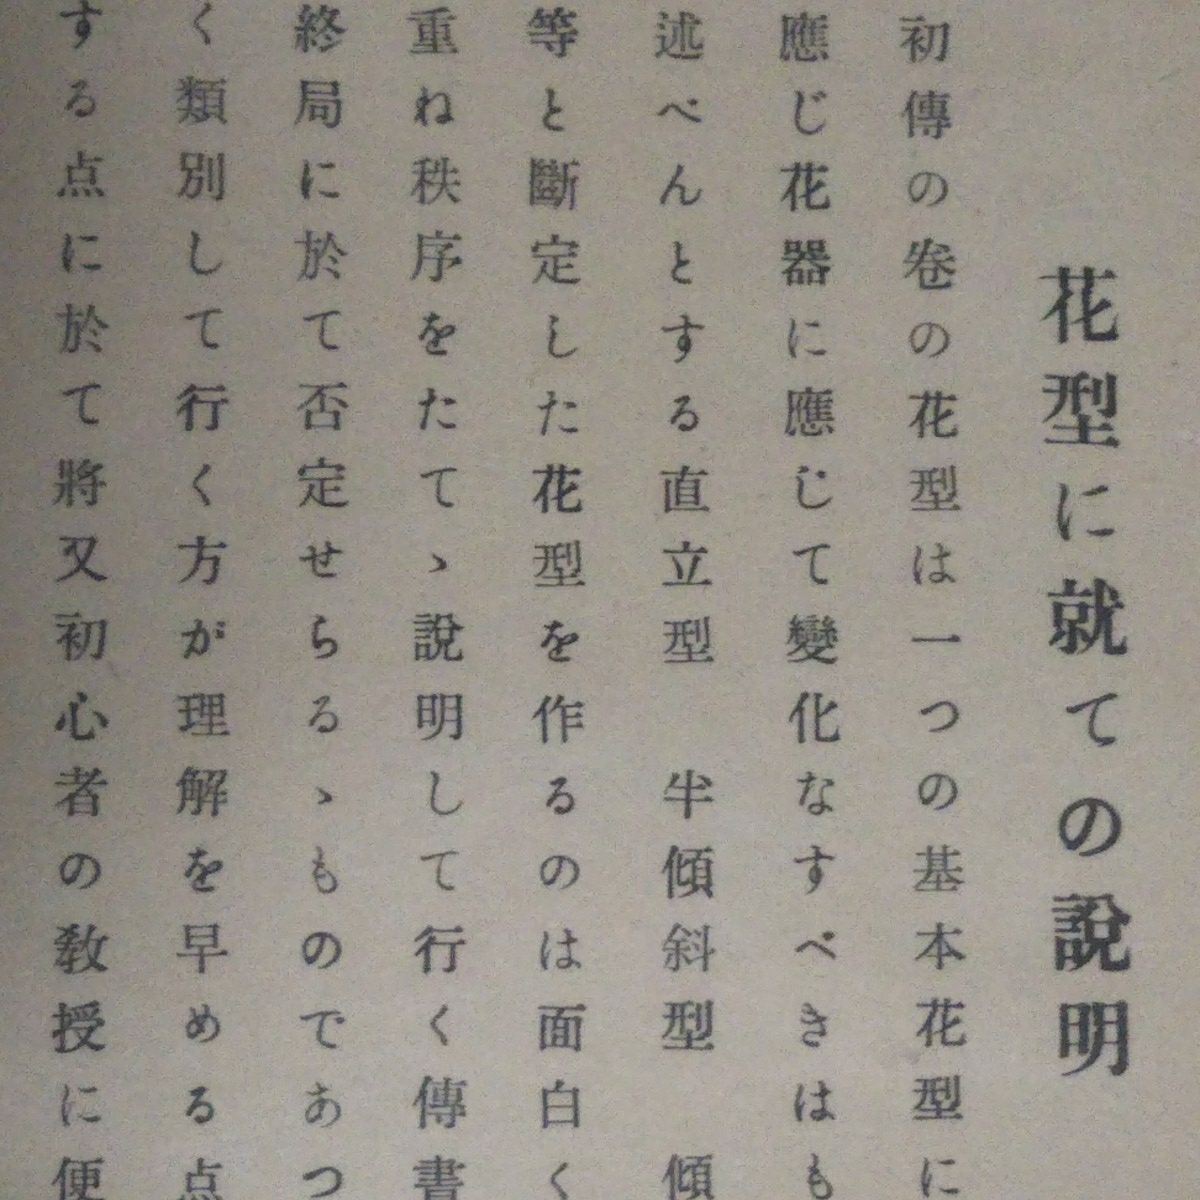 花型に就ての說明
初傳の卷の花型は一つの基本花型に
應じ花器に應じて變化なすべきはも
述べんとする直立型　半傾斜型　傾
等と斷定した花型を作るのは面白く
重ね秩序をたてゝ說明して行く傳書
終局に於て否定せらるゝものであつ
く類別して行く方が理解を早める点
する点に於て將又初心者の敎授に便